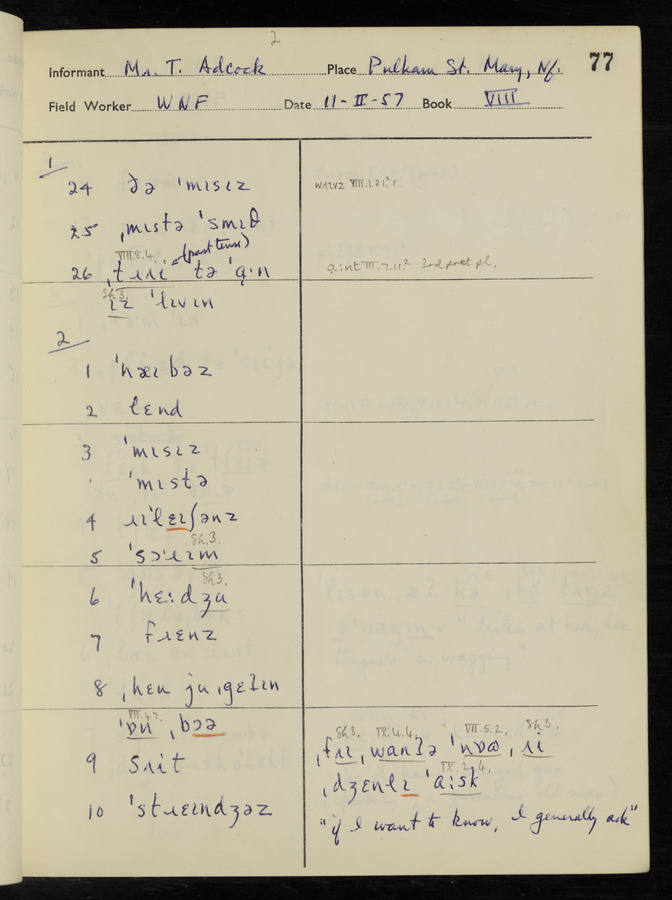 2
Informant Mr. T. Adcock Place Pulham St. Mary, Nf. 77
Field Worker WNF Date 11-II-57 Book VIII
1
24 ðə ˈmɪsɪz
25 ˌmɪstə ˈsmɪθ
VIII.8.4. (past tense)
26 ˌtɹɹi tə ˈɡ̣ɪn
Sh.3.
ɪz ˈlɪvɪn
a:nt III.7.11.² 3rd pret pl.
2
1 ˈnæɪbəz
2 lɛnd
3 ˈmɪsɪz
ˈmɪstə
4 ɹɪˈlɛɪʃənz
Sh.3.
5
Sh.3.
6 ˈhɛ:dʒu
7 fɹɛnz
8 ˌhɛu ju ˌɡɛʔɪn
VII.4.7.
ˈɒn ˌbɔə
9
10 ˈstɹɛɪndʒəz
Sh.3. IX.4.4. VII.5.2. Sh.3.
IX.2.4.
ˌdʒɛnlɪ ˈa:sk
"if I want to know, I generally ask"